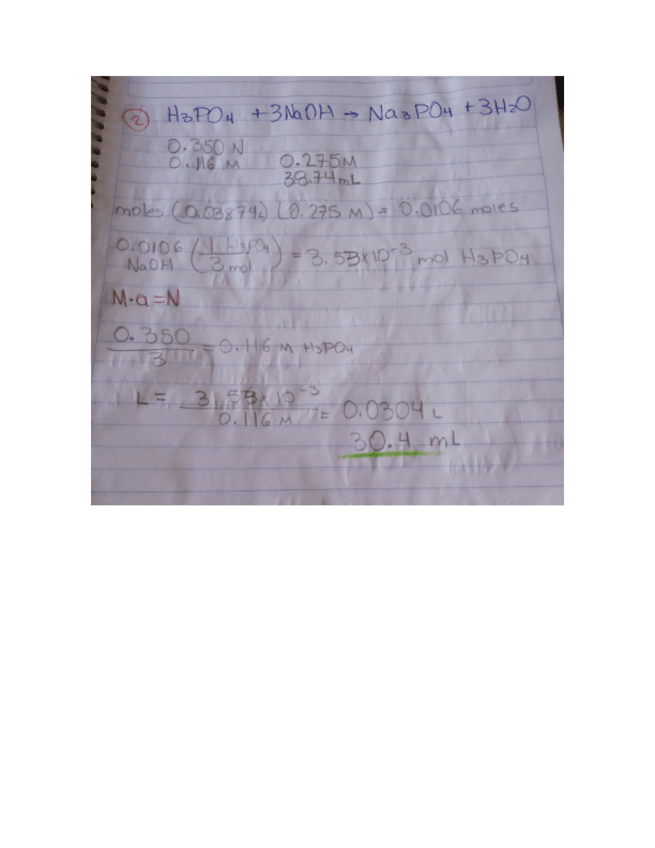 2 H3PO4 + 3NaOH → Na3PO4 + 3H2O
0.350 N
0.116 M 0.275M
38.74mL
moles (0.03874L) (0.275 M) = 0.0106 moles
0.0106 NaOH (1 H3PO4 / 3 mol) = 3.53x10⁻³ mol H3PO4
M·a = N
0.350 / 3 = 0.116 M H3PO4
L = 3.53x10⁻³ / 0.116 M = 0.0304 L
30.4 mL